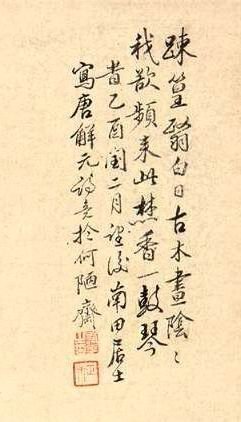 踈篁翳白日古木晝陰〻
我欲頻来此焚香一鼓琴
旹乙酉閏二月望後南田居士
寫唐解元詩意於何陋齋